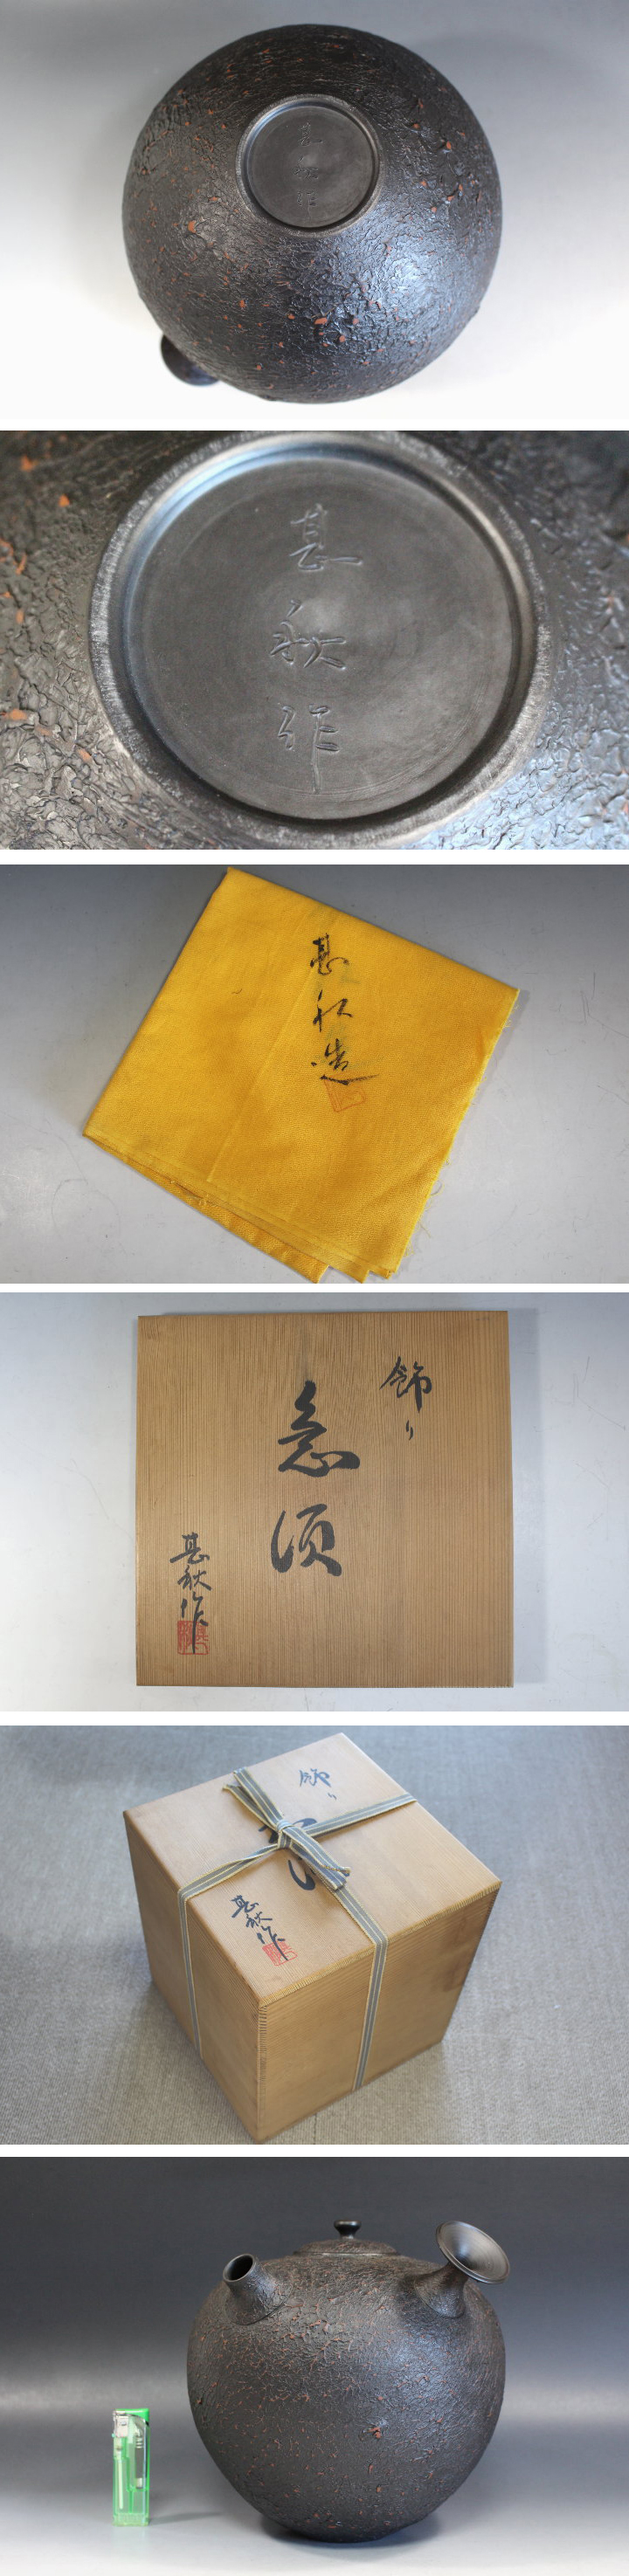 甚
秋
作
甚
秋
作
甚
秋
造
飾り
急須
甚秋作
飾り
甚秋作